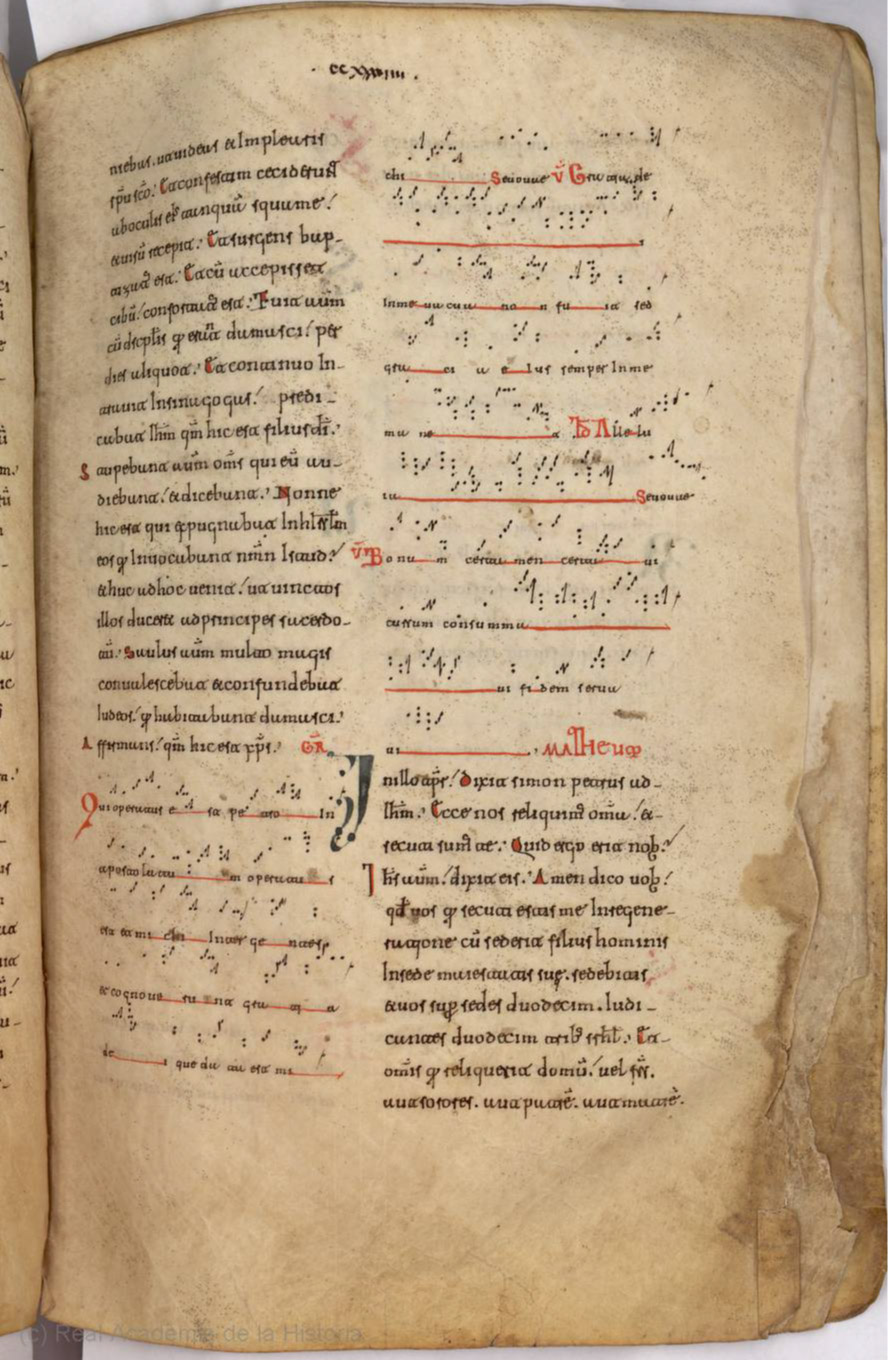 · ccxxviiii ·
niebat. ut uideas & Impleuris
spũ scõ. Et confestim ceciderunt
ab oculis eius tanquã squame.
& uisũ recepit. Et surgens bap-
tizatus est. Et cũ accepisset
cibũ. confortatus est. Fuit autm
cũ discipulis qui erant damasci. per
dies aliquot. Et continuo In-
trauit In sinagogas. predi-
cabat Ihm qm hic est filius di.
Stupebant autm oms qui eũ au-
diebant. & dicebant. Nonne
hic est qui expugnabat In hierslm
eos qui Inuocabant nmn Istud.
& huc ad hoc uenit. ut uinctos
illos duceret ad principes sacerdo-
tũ. Saulus autm multo magis
conualescebat & confundebat
Iudeos. qui habitabant damasci.
Affirmans. qm hic est xps. GR.
Qui operatus est petro In
apostolatu m operatus
est et mi chi Inter gentes
et cognoueru nt gratia
de i que data est mi
chi Seuouae V Gratia de
In me uacua no n fu it sed
gratia ei us semper In me
ma ne t Alle lu
ia Seuouae
V Bonu m certamen certa ui
cursum consumma
ui fidem serua
ui Matheus
In illo tprẽ. Dixit simon petrus ad
Ihm. Ecce nos reliquims omnia. &
secuti sums te. Quid ergo erit nob.
Ihs autm. dixit eis. Amen dico uob.
qd uos qui secuti estis me In regene-
ratione cũ sederit filius hominis
In sede maiestatis suę. sedebitis
& uos sup sedes duodecim. Iudi-
cantes duodecim trib isrhl. Et
omĩs qui reliquerit domũ. uel frs.
aut sorores. aut patrẽ. aut matrẽ.